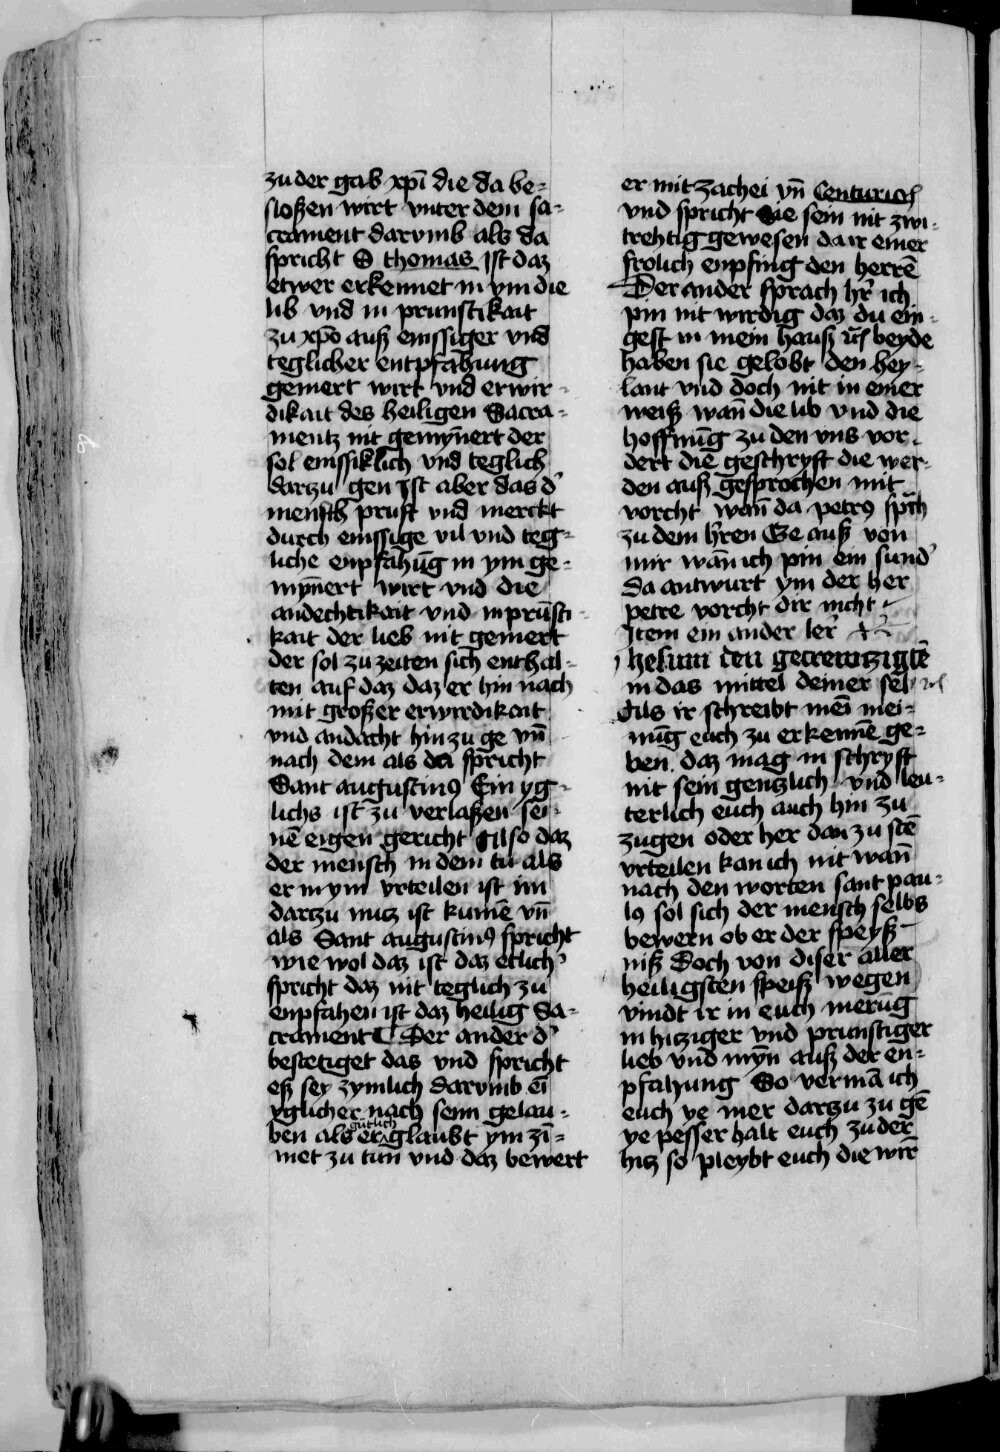 zu der gab xpī die da be-
sloßen wirt vnter dem sa-
crament darvmb als da
spricht S thomas Ist daz
etwer erkennet in ym die
lib vnd in prunstikait
zu xpō auß emssiger vnd
teglicher entpfahung
gemert wirt vnd erwir-
dikait des heiligen Sacra-
mentz nit gemyn̄ert der
sol emssiklich vnd teglich
darzu gen Ist aber das d'
mensch pruft vnd merckt
durch emssige vil vnd teg-
liche enpfahūg in ym ge-
myn̄ert wirt vnd die
andechtikait vnd inprūsti-
kait der lieb nit gemert
der sol zu zeiten sich enthal-
ten auf daz daz er hin nach
mit großer erwirdikait
vnd andacht hin zu ge vn̄
nach dem als da spricht
Sant augustin9 Ein yg-
lichs ist zu verlaßen sei-
nē eigen gericht Also daz
der mensch in dem tu als
er in ym vrteilen ist im
dartzu nutz ist kumē vn̄
als Sant augustin9 spricht
wie wol daz ist daz etlich'
spricht daz nit teglich zu
enpfahen ist daz heilig Sa-
crament Der ander d'
bestetiget das vnd spricht
eß sey zymlich darvmb eī
yglicher nach seim gelau-
ben als er gutlich glaubt ym zī-
met zu tun vnd daz bewert
er mit zachei vn̄ Centurio
vnd spricht Sie sein nit zwi-
trehtig gewesen da ir einer
frolich enpfing den herrē
Der ander sprach hr̄ ich
pin nit wirdig daz du ein-
gest in mein hauß beyde
haben sie gelobt den hey-
lant vnd doch nit in einer
weiß wan̄ die lib vnd die
hoffnūg zu den vns vor-
dert die geschryft die wer-
den auß gesprochen mit
vorcht wan̄ da petr9 sp̄ch
zu dem hr̄en Ge auß von
mir wan̄ ich pin ein sund'
da antwurt ym der her
petre vorcht dir nicht
Item ein ander ler
Ihesum den gecrewtzigtē
in das mittel deiner sel
Als ir schreibt mei mei-
nūg euch zu erkennē ge-
ben daz mag in schryft
nit sein gentzlich vnd leu-
terlich euch auch hin zu
zugen oder her dan zu stē
vrteilen kan ich nit wan̄
nach den worten sant pau-
l9 sol sich der mensch selbs
bewern ob er der speyß
niß Doch von diser aller
heiligsten speiß wegen
vindt ir in euch merūg
in hitziger vnd prunstiger
lieb vnd myn̄ auß der en-
pfahung So vermā ich
euch ye mer dartzu zu gē
ye pesser halt euch zu der
hitz so pleybt euch die wir̄